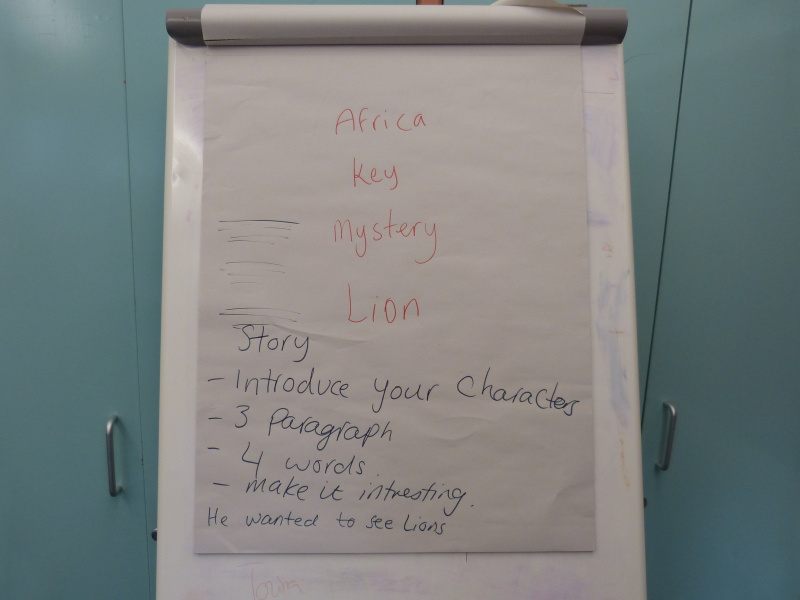 Africa
Key
Mystery
Lion
Story
- Introduce your Characters
- 3 Paragraph
- 4 words.
- make it intresting.
He wanted to see Lions
Town